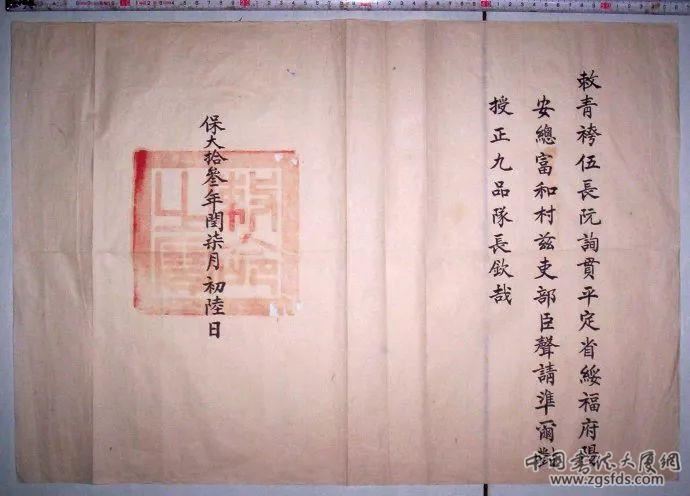 敕青袴伍長阮詢貫平定省綏福府陽
安總富和村茲吏部臣聲請準爾對
授正九品隊長欽哉
保大拾叄年閏柒月初陸日
敕命之寶
中国书法大厦网
www.zgsfds.com